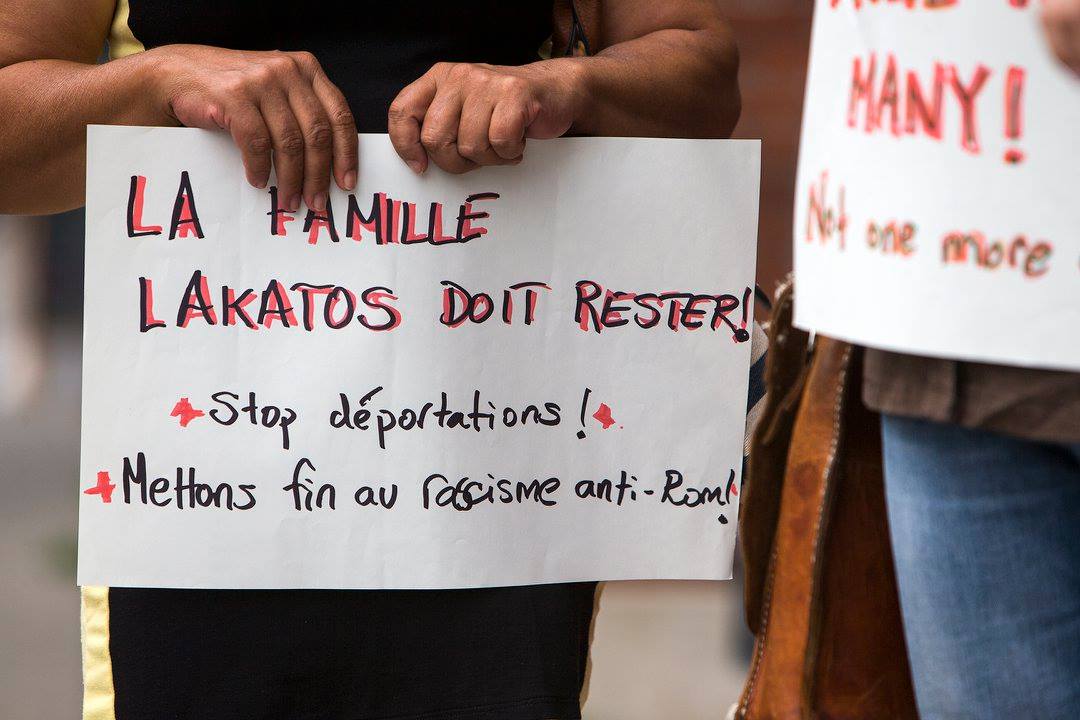 LA FAMILLE
LAKATOS DOIT RESTER!
Stop déportations !
Mettons fin au racisme anti-Rom!
MANY!
Not one more